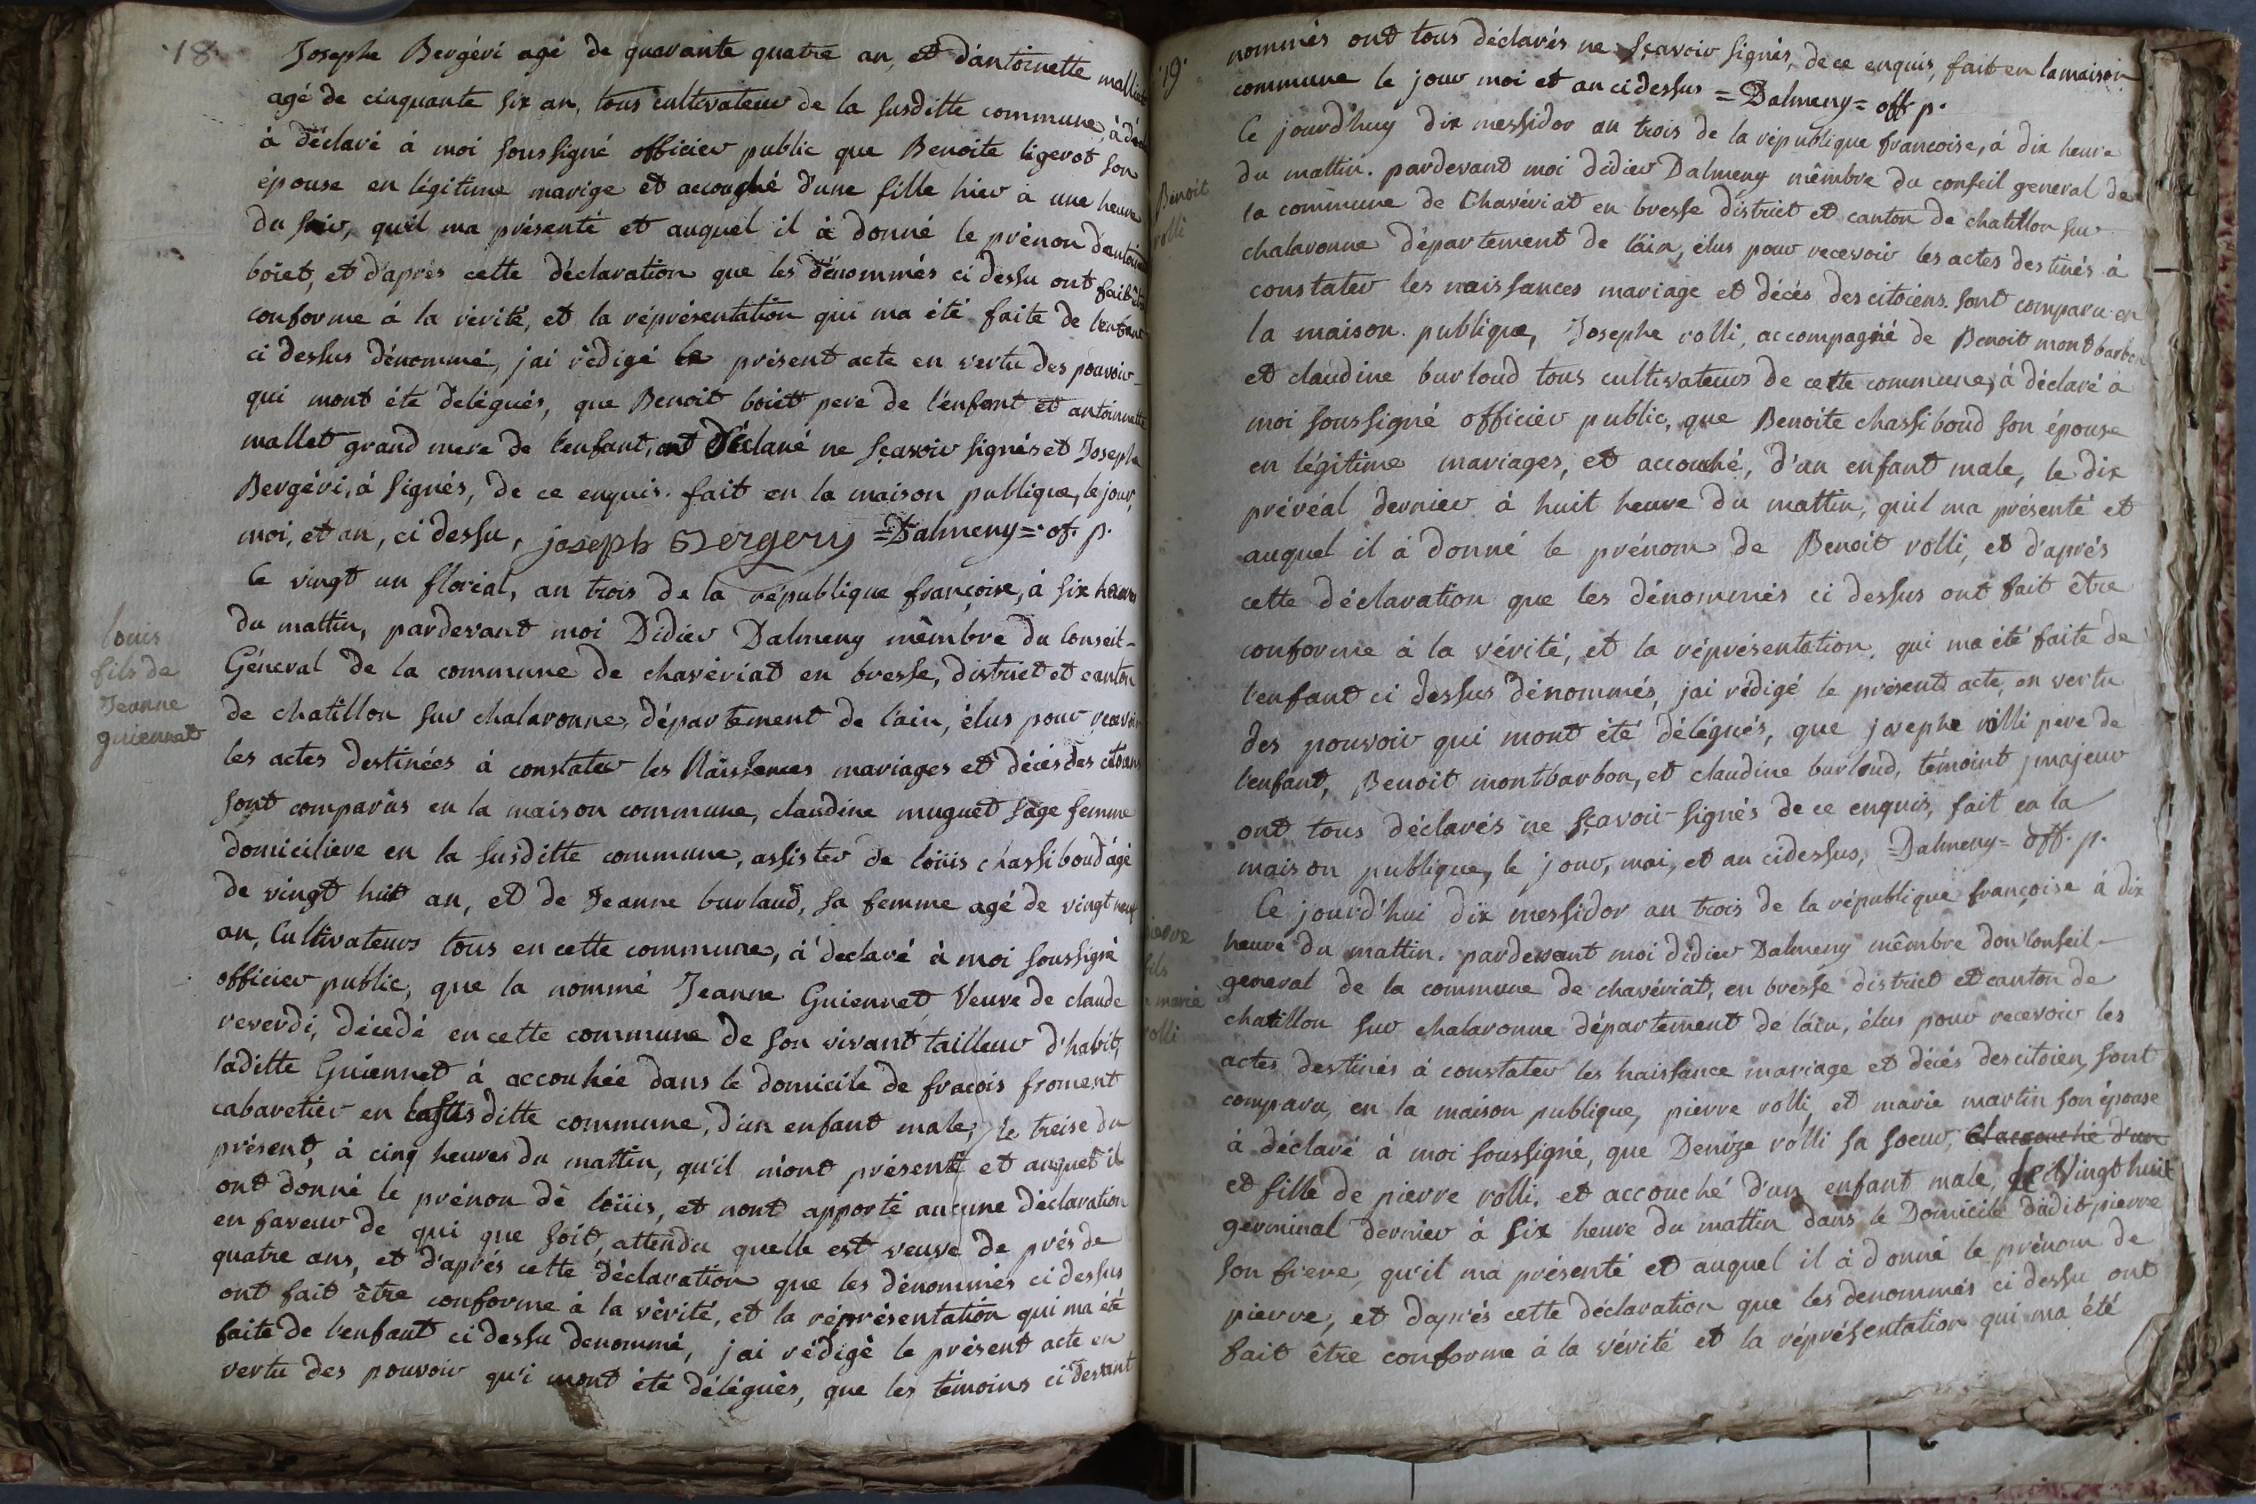 18.
Josephe Bergéri agé de quarante quatre an, et d'antoinette
agé de cinquante six an, tous cultivateur de la susditte commune, à
à déclaré à moi soussigné officier public que Benoite ligerot son
épouse en légitime marige et accouché d'une fille hier à une heure
du soir, qu'il ma présenté et auquel il à donné le prénon
boiet, et d'aprés cette déclaration que les dénommés ci dessu ont fait
conforme à la vérité, et la réprésentation qui ma été faite de l'enfant
ci dessus dénommé, jai rédigé le présent acte en vertu des pouvoir
qui mont été delégués, que Benoit boiett pere de l'enfant et antoinette
mallet grand mere de l'enfant, ont déclaré ne sçavoir signés et Joseph
Bergéri, à signés, de ce enquis. fait en la maison publique, le jour,
moi, et an, ci dessu, joseph Bergery =Dalmeny= of. p.
louis
fils de
Jeanne
guiennet
Ce vingt un floréal, an trois de la république françoise, à six heures
du mattin, pardevant moi Didier Dalmeny mêmbre du Conseil-
Géneral de la commune de chavériat en bresse, district et canton
de chatillon sur chalaronne, département de l'ain, élus pour recevoir
les actes destinées à constater les Naissences mariages et décés des citoiens
sont comparus en la maison commune, claudine muguet sage femme
domiciliere en la susditte commune, assister de loüis chassiboud âgé
de vingt huit an, et de Jeanne burlaud, sa femme agé de vingt neuf
an, Cultivateurs tous en cette commune, à déclaré à moi soussigné
officier public, que la nommé Jeanne Guiennet, Veuve de claude
reverdi, décedé en cette commune de son vivant tailleur d'habit,
laditte Guiennet à accouhée dans le domicile de fracois froment
cabaretiér en ditte commune, d'un enfant male, le treise du
présent, à cinq heures du mattin, qu'il m'ont présenté et auquel il
ont donné le prénon dê loüis, et nont apporté aucune déclaration
en faveur de qui que soit, attendu quelle est veuve de prés de
quatre ans, et d'aprés cette déclaration que les dénommés ci dessus
ont fait être conforme à la vérité, et la réprésentation qui ma été
faite de l'enfant ci dessu denommé, jai rédigé le présent acte en
vertu des pouvoir qu'i mont été délégués, que les témoins ci devant
19.
nommés ont tous déclarés ne sçavoir signés, de ce enquis, fait en la maison
commune le jour moi et an ci dessus =Dalmeny= off. p.
Benoit
rolli
Ce jourd'huy dix messidor an trois de la république francoise, à dix heure
du mattin. pardevant moi didier Dalmeny mêmbre du conseil general de
la commune de Chavériat en bresse district et canton de chatillon sur
chalaronne département de l'ain, élus pour recevoir les actes destinés à
constater les naissances mariage et décés des citoiens. sont comparu en
la maison publique, Josephe rolli, accompagné de Benoit montbarbon
et claudine burloud tous cultivateurs de cette commune, à déclaré à
moi soussigné officier public, que Benoite chassiboud son épouse
en légitime mariages, et accouché, d'un enfant male, le dix
préréal dernier à huit heure du mattin, quil ma présenté et
auquel il à donné le prénom de Benoit rolli, et d'aprés
cette déclaration que les dénommés ci dessus ont fait être
conforme à la vérité, et la réprésentation qui ma été faite de
l'enfant ci dessus dénommés, jai rédigé le présent acte, en vertu
des pouvoir qui mont été délégués, que josephe rolli pere de
l'enfant, Benoit montbarbon, et claudine burloud, témoint majeur
ont tous déclarés ne sçavoir signés de ce enquis, fait en la
maison publique, le jour, moi, et an cidessus, =Dalmeny= off. p.
pierre
fils
marie
rolli
Ce jourd'hui dix messidor an trois de la république françoise à dix
heure du mattin. pardevant moi didier Dalmeny mêmbre don Conseil-
general de la commune de chavériat, en bresse district et canton de
chatillon sur chalaronne département de l'ain, élus pour recevoir les
actes destinés à constater les naissance mariage et décés des citoien, sont
comparu, en la maison publique, pierre rolli, et marie martin son épouse
à déclaré à moi soussigné, que Denize rolli sa soeur, et accouché d'un
et fille de pierre rolli, et accouché d'un enfant male, le vingt huit
germinal dernier à six heure du mattin dans le Domicile dudit pierre
son frere, qu'il ma présenté et auquel il à donné le prénom de
pierre, et d'aprés cette déclaration que les denommés ci dessu ont
fait être conforme à la vérité et la réprésentation qui ma été